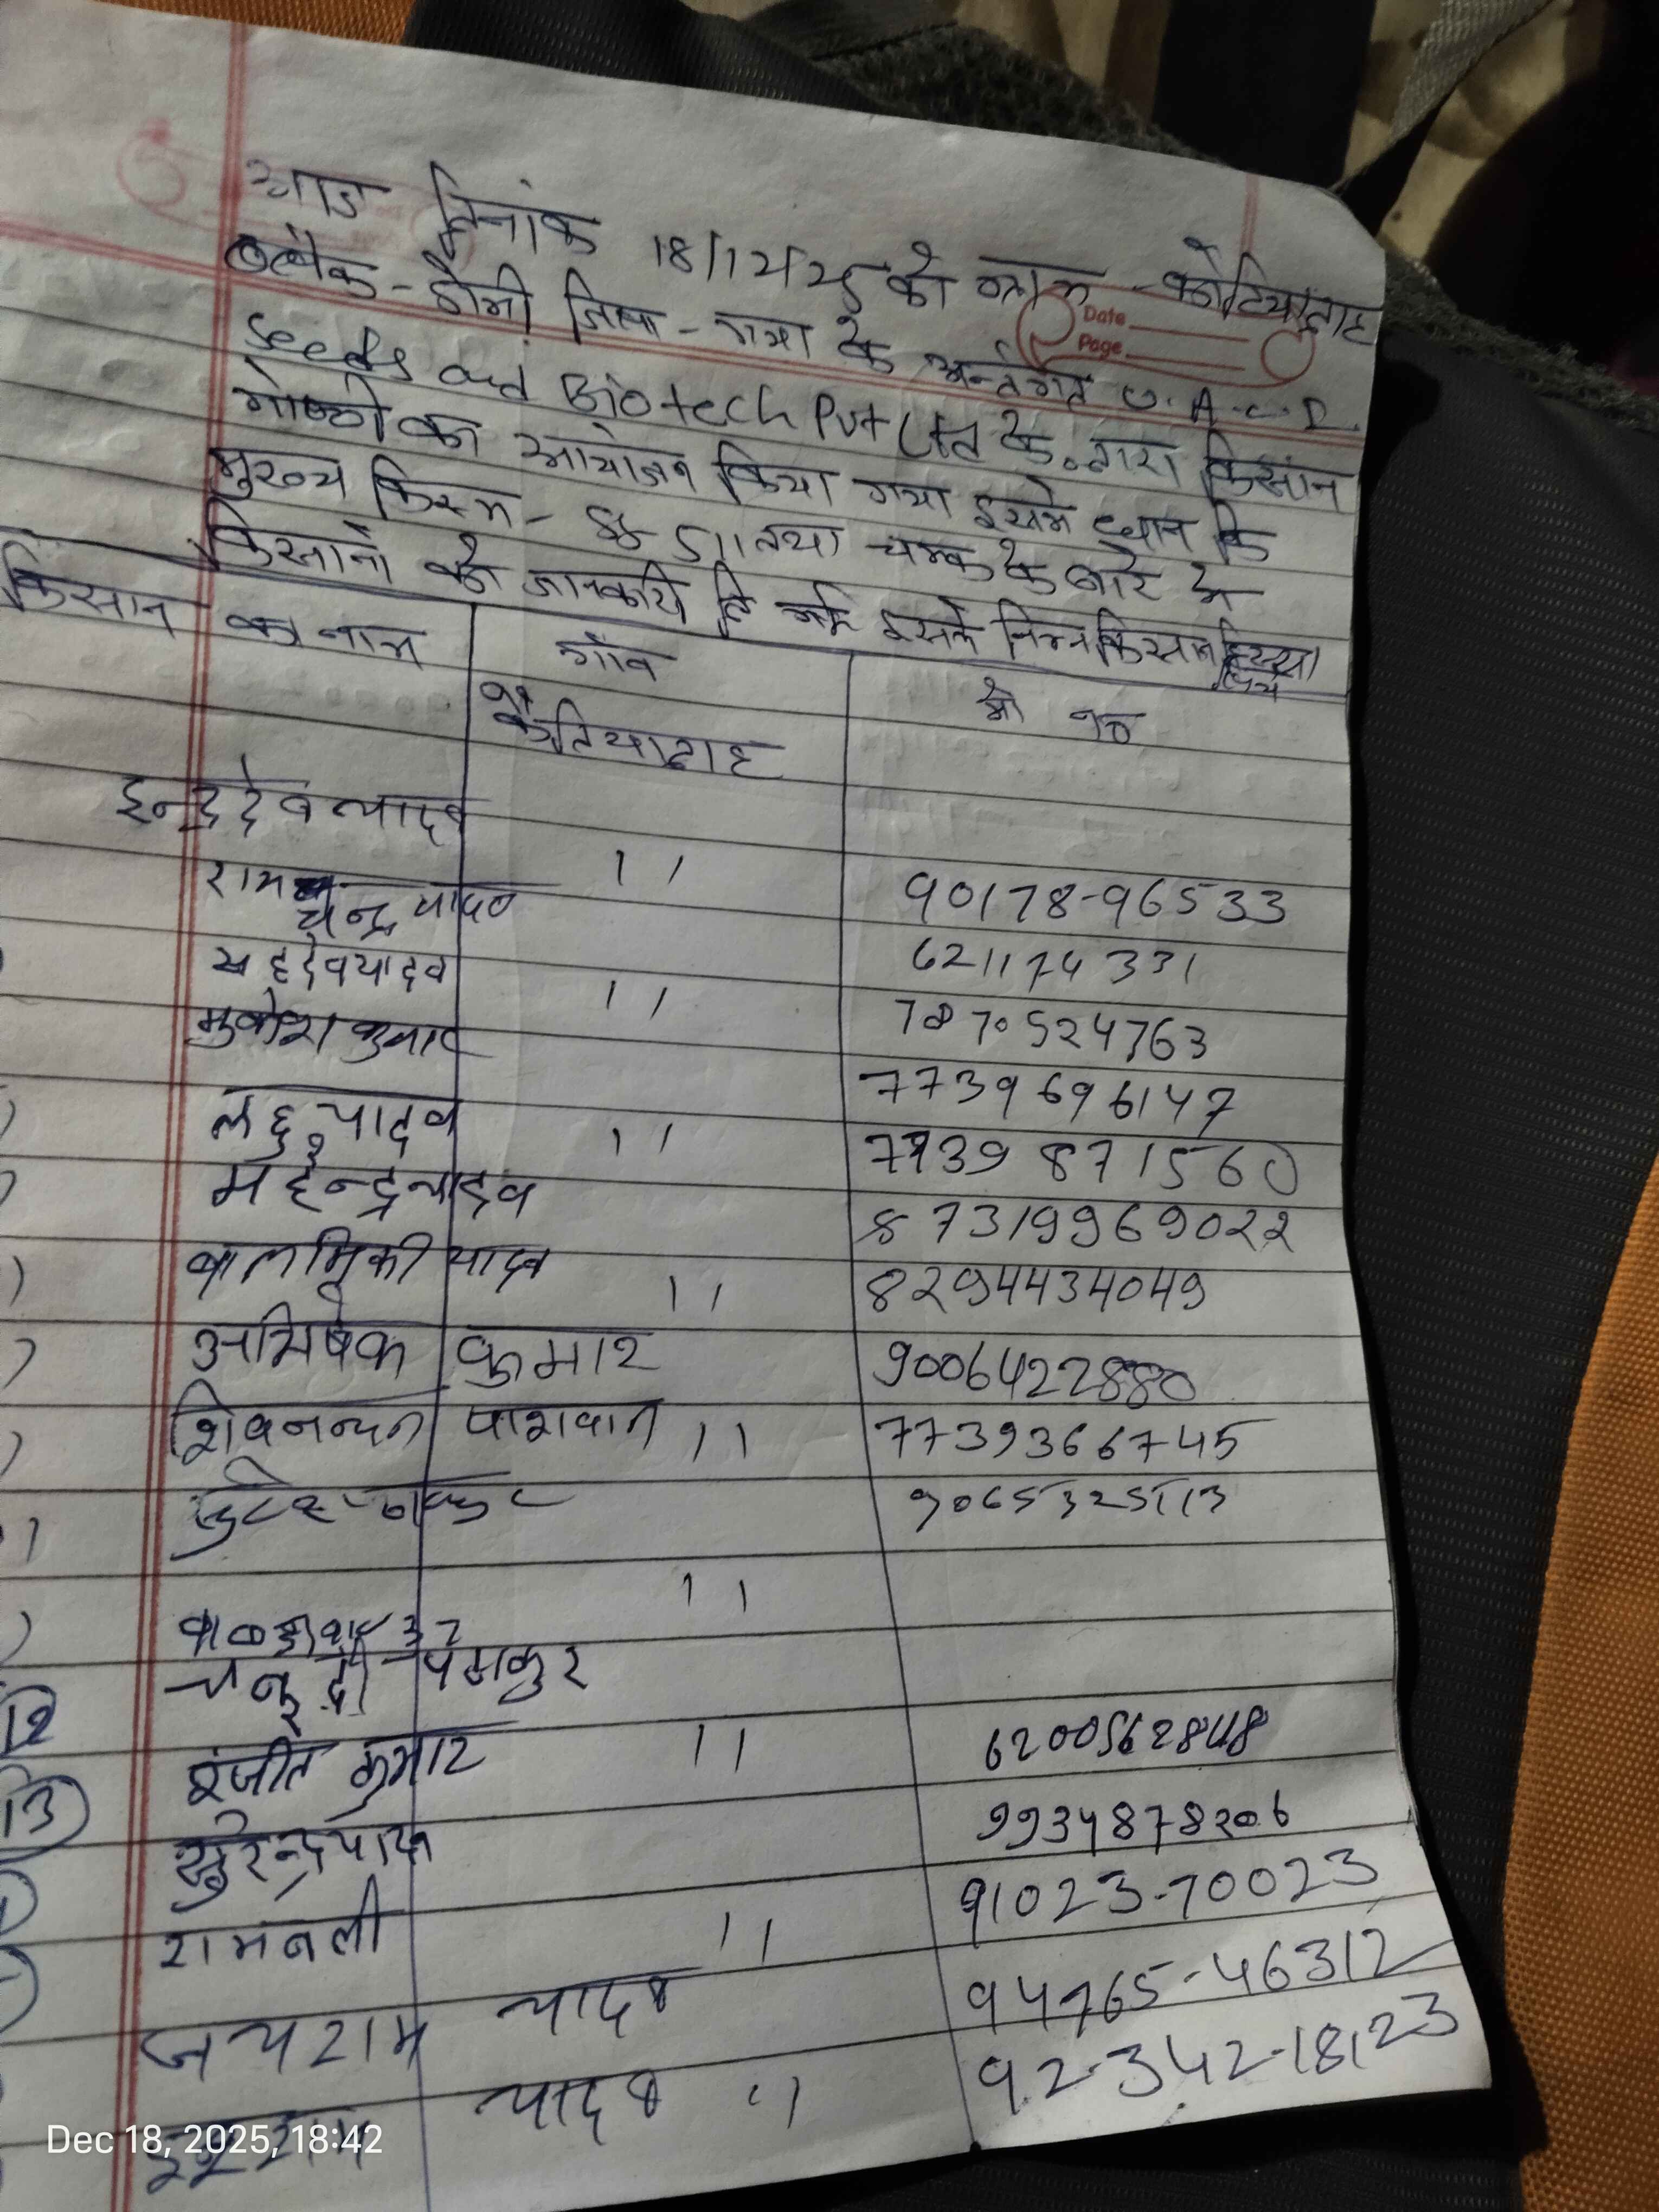 आज दिनांक 18/12/25 को ग्राम - कोटियादाह
Date
Page
ब्लौक - डोभी जिला - गया के अर्न्तगत U.A.C.D.
Seeds and Biotech Pvt Ltd के द्वारा किसान
गोष्ठी का आयोजन किया गया इसमे धान कि
मुख्य किस्म - तथा चमक के बारे मे
किसानो को जानकारी दि गई इसमे निम्न किसान हिस्सा
लिये
किसान का नाम गाँव मो न०
कोतियादाह
इन्द्रदेव यादव ।।
रामचन्द्र यादव 90178-96533
सहदेव यादव ।। 621174331
मुकेश कुमार 7870524763
7739696147
लहु यादव ।। 7739871560
महेन्द्र यादव 87319969022
बालमिकी यादव ।। 8294434049
अभिषेक कुमार 9006422880
शिवनन्दन पाशवान ।। 7739366745
9065325113
।।
ठाकुर
12 रंजीत कुमार ।। 6200562848
13 सुरेन्द्र यादव 9934878206
रामबली ।। 91023-70023
जयराम यादव 94765-46312
यादव ।। 92-342-18123
Dec 18, 2025, 18:42